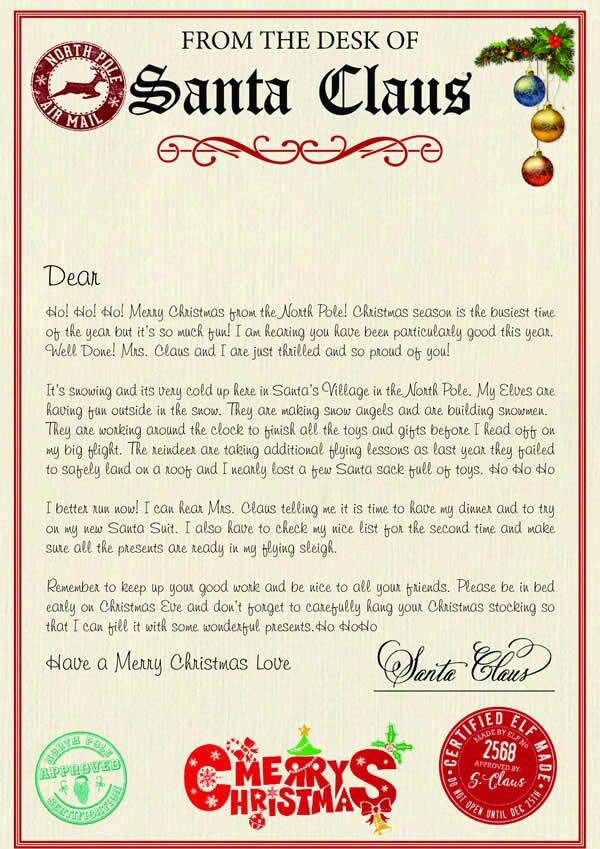 FROM THE DESK OF
Santa Claus
NORTH POLE
AIR MAIL
Dear
Ho! Ho! Ho! Merry Christmas from the North Pole! Christmas season is the busiest time
of the year but it's so much fun! I am hearing you have been particularly good this year.
Well Done! Mrs. Claus and I are just thrilled and so proud of you!
It's snowing and its very cold up here in Santa's Village in the North Pole. My Elves are
having fun outside in the snow. They are making snow angels and are building snowmen.
They are working around the clock to finish all the toys and gifts before I head off on
my big flight. The reindeer are taking additional flying lessons as last year they failed
to safely land on a roof and I nearly lost a few Santa sack full of toys. Ho Ho Ho
I better run now! I can hear Mrs. Claus telling me it is time to have my dinner and to try
on my new Santa Suit. I also have to check my nice list for the second time and make
sure all the presents are ready in my flying sleigh.
Remember to keep up your good work and be nice to all your friends. Please be in bed
early on Christmas Eve and don't forget to carefully hang your Christmas stocking so
that I can fill it with some wonderful presents.Ho HoHo
Have a Merry Christmas Love
Santa Claus
NORTH POLE
APPROVED
CERTIFICATION
MERRY
CHRISTMAS
CERTIFIED ELF MADE
MADE BY ELF No
2568
APPROVED BY:
S. Claus
DO NOT OPEN UNTIL DEC 25TH